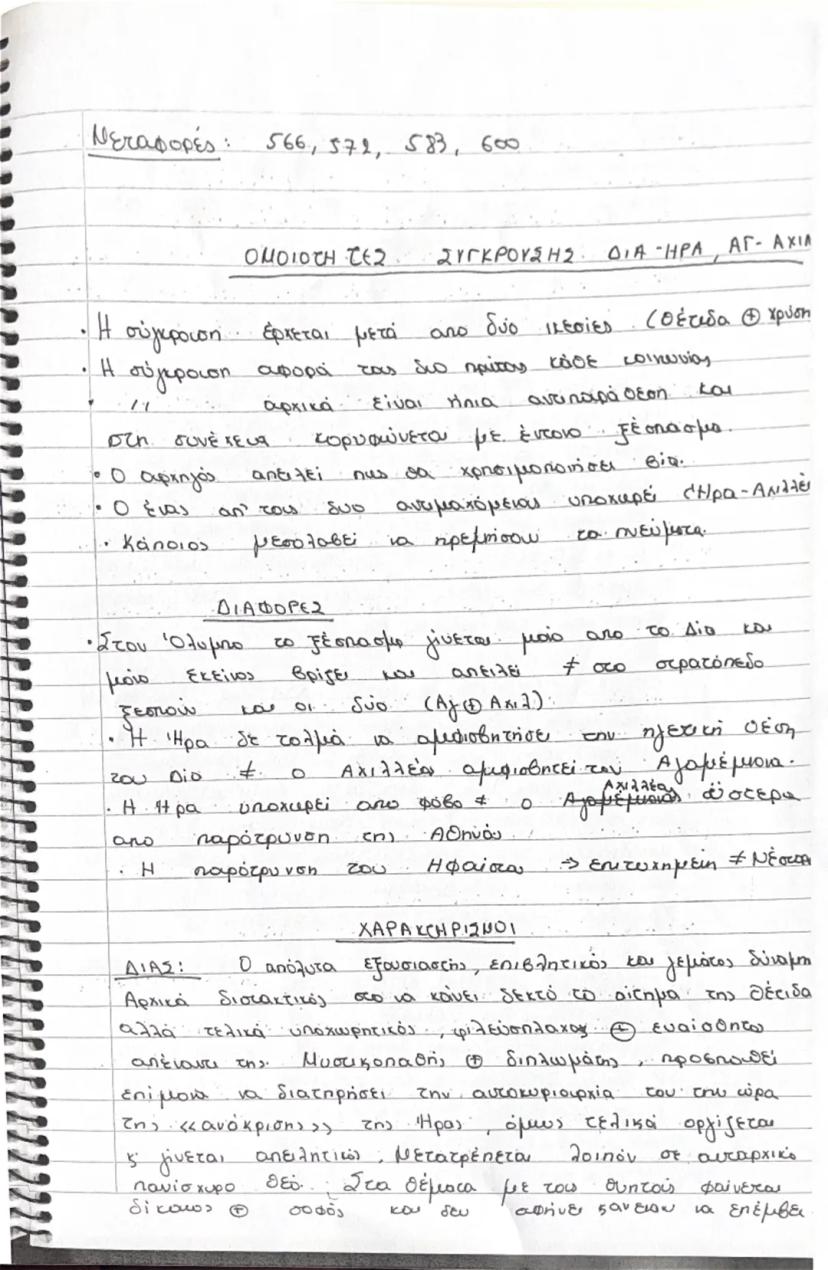 Μεταφορές: 566, 572, 583, 600
ΟΜΟΙΟΤΗΤΕΣ ΣΥΓΚΡΟΥΣΗΣ ΔΙΑ-ΗΡΑ, ΑΓ-ΑΧΙΛ
· Η σύγκρουση έρχεται μετά απο δύο ικεσίες (Θέτιδα ⊕ Χρύση
· Η σύγκρουση αφορά τους δυο πρώτους κάθε κοινωνίας
· '' αρχικά είναι ήπια αντιπαράθεση και
στη συνέχεια κορυφώνεται με έντονο ξέσπασμα.
· Ο αρχηγός απειλεί πως θα χρησιμοποιήσει βία.
· Ο ένας απ' τους δυο αντιμαχόμενους υποχωρεί (Ήρα-Αχιλλέ
· Κάποιος μεσολαβεί να ηρεμήσουν τα πνεύματα.
ΔΙΑΦΟΡΕΣ
· Στον Όλυμπο το ξέσπασμα γίνεται μόνο απο το Δία και
μόνο εκείνος βρίζει και απειλεί ≠ στο στρατόπεδο
ξεσπούν και οι δύο (Αγ ⊕ Αχιλ).
· Η Ήρα δε τολμά να αμφισβητήσει την ηγετική θέση
του Δία ≠ ο Αχιλλέας αμφισβητεί τον Αγαμέμνονα.
· Η Ήρα υποχωρεί απο φόβο ≠ ο Αχιλλέας ύστερα
απο παρότρυνση της Αθηνάς.
· Η παρότρυνση του Ηφαίστου → επιτυχημένη ≠ Νέστορα
ΧΑΡΑΚΤΗΡΙΣΜΟΙ
ΔΙΑΣ: Ο απόλυτα εξουσιαστής, επιβλητικός και γεμάτος δύναμη
Αρχικά διστακτικός στο να κάνει δεκτό το αίτημα της Θέτιδα
αλλά τελικά υποχωρητικός, φιλεύσπλαχος ⊕ ευαίσθητος
απέναντι της. Μυστικοπαθής ⊕ διπλωμάτης, προσπαθεί
επίμονα να διατηρήσει την αυτοκυριαρχία του την ώρα
της «ανάκρισης» της Ήρας, όμως τελικά οργίζεται
κ' γίνεται απειλητικός. Μετατρέπεται λοιπόν σε αυταρχικό
πανίσχυρο θεό. Στα θέματα με τους θνητούς φαίνεται
δίκαιος ⊕ σοφός και δεν αφήνει κανέναν να επέμβει